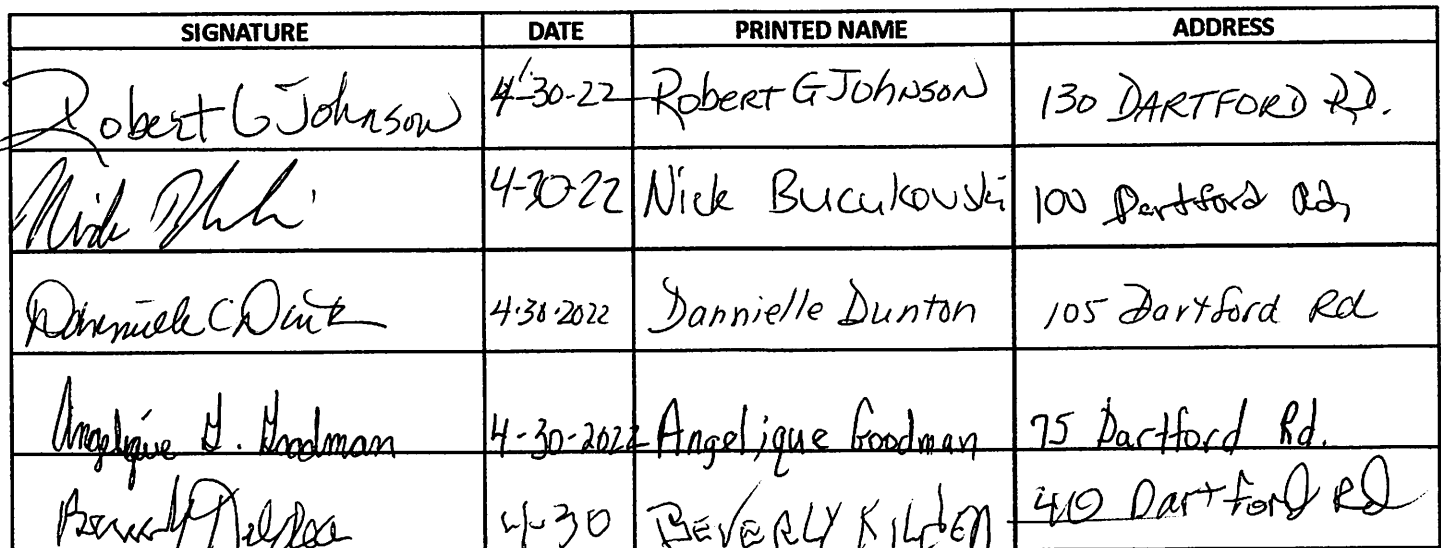 SIGNATURE DATE PRINTED NAME ADDRESS
Robert G Johnson 4-30-22 Robert G Johnson 130 DARTFORD RD.
Nick 4-30-22 Nick Bucukouski 100 Dartford Rd,
Dannielle C Dunt 4.30.2022 Dannielle Dunton 105 Dartford Rd
Angelique G. Goodman 4-30-2022 Angelique Goodman 75 Dartford Rd.
4-30 BEVERLY KILDEN 40 Dartford Rd